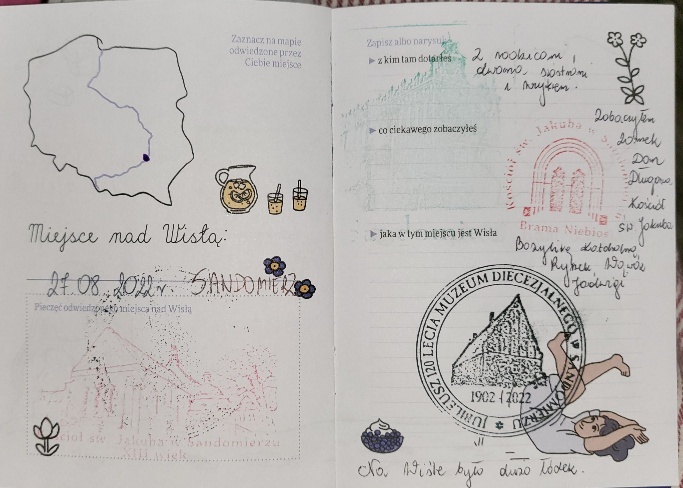 Zaznacz na mapie
odwiedzone przez
Ciebie miejsce
Miejsce nad Wisłą:
27.08.2022 r. SANDOMIERZ
Pieczęć odwiedzonego miejsca nad Wisłą
Kościół św. Jakuba w Sandomierzu
XIII wiek
Zapisz albo narysuj
z kim tam dotarłeś
Z rodzicami,
dwoma siostrami
i wujkiem.
co ciekawego zobaczyłeś
Zobaczyłem
Zamek
Dom
Długosza
Kościół
św Jakuba
Bazylikę Katedralną
Rynek, Wąwóz
Jadwigi
Kościół św. Jakuba w Sandomierzu
Brama Niebios
jaka w tym miejscu jest Wisła
JUBILEUSZ 120 LECIA MUZEUM DIECEZJALNEGO W SANDOMIERZU
1902 / 2022
Na Wiśle było dużo łódek.